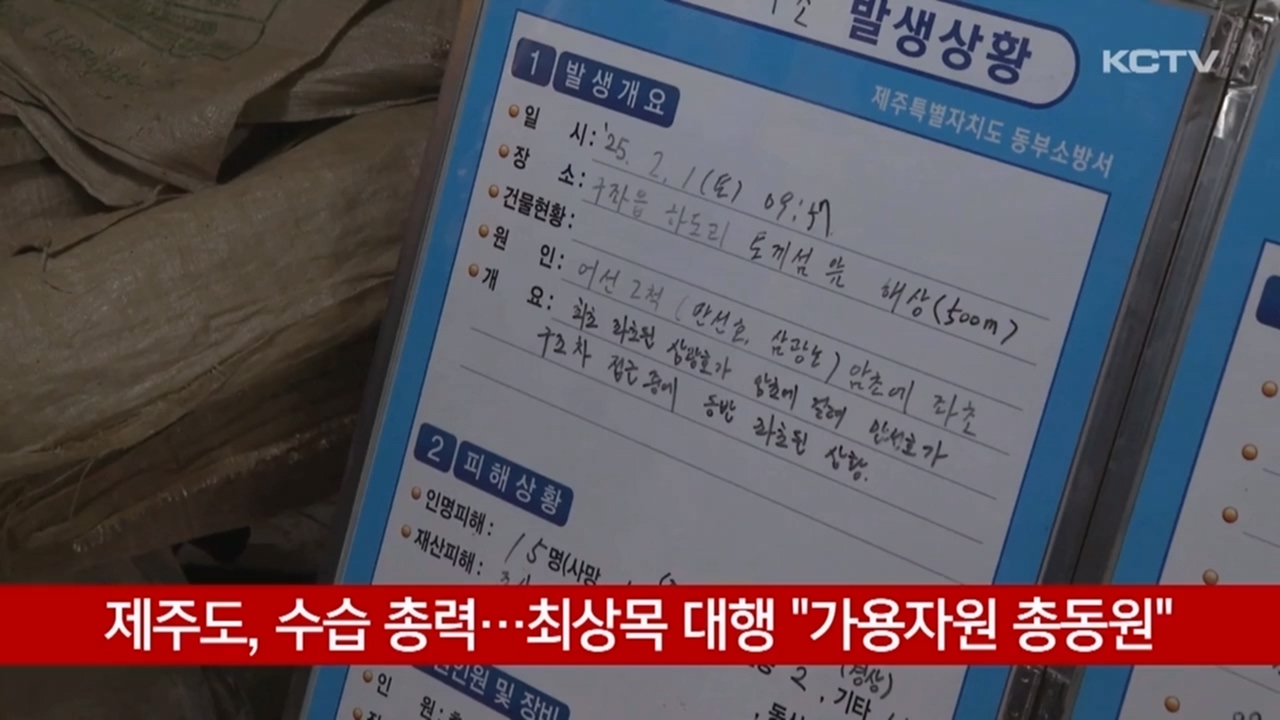 발생상황
KCTV
제주특별자치도 동부소방서
1 발생개요
일 시: '25. 2. 1 (토) 09:57
장 소: 구좌읍 하도리 토끼섬 앞 해상(500m)
건물현황:
원 인: 어선 2척 (만선호, 삼광호) 암초에 좌초
개 요: 최초 좌초된 삼광호가 암초에 걸려 만선호가
구조차 접근 중에 동반 좌초된 상황.
2 피해상황
인명피해: 15명(사망
재산피해:
제주도, 수습 총력…최상목 대행 "가용자원 총동원"
2, (경상)
기타
인원 및 장비
인 원: 총